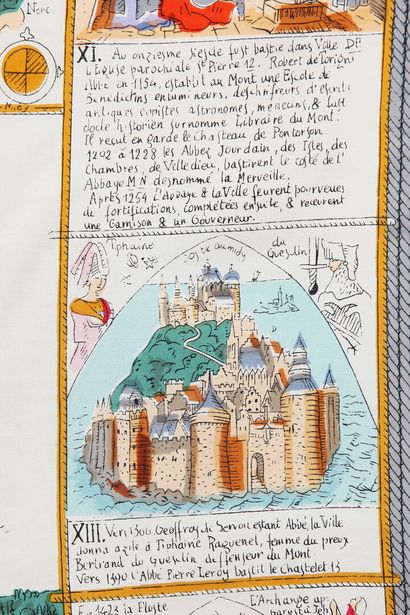 Nord
Midy
XI. Au onziesme siesde fust bastie dans Ville DE
L'Eglise parochiale St Pierre 12. Robert de Torigni
Abbé en 1154, establit au Mont une Escole de
Benedictins enlumineurs, deschifreurs d'escrits
antiques copistes astronomes, medecins, & fust
docte historien surnommé Libraire du Mont.
Il reçut en garde le Chasteau de Pontorson
1202 à 1228 les Abbez Jourdain, des Isles, des
Chambres, de Villedieu, bastirent le costé de l'
Abbaye M N desnommé la Merveille.
Après 1254 l'Abbaye & la Ville feurent pourveues
de fortifications, completées ensuite, & reçeurent
une Garnison & un Gouverneur.
Tiphaine
du
Guesclin
XIII. Vers 1366 Geoffroy de Servon estant Abbé, la Ville
donna azile à Tiphaine Raguenel, femme du preux
Bertrand du Guesclin deffenseur du Mont
Vers 1390 l'Abbé Pierre Leroy bastit le Chastelet 13
En 1423 la Floste
L'Archange ap